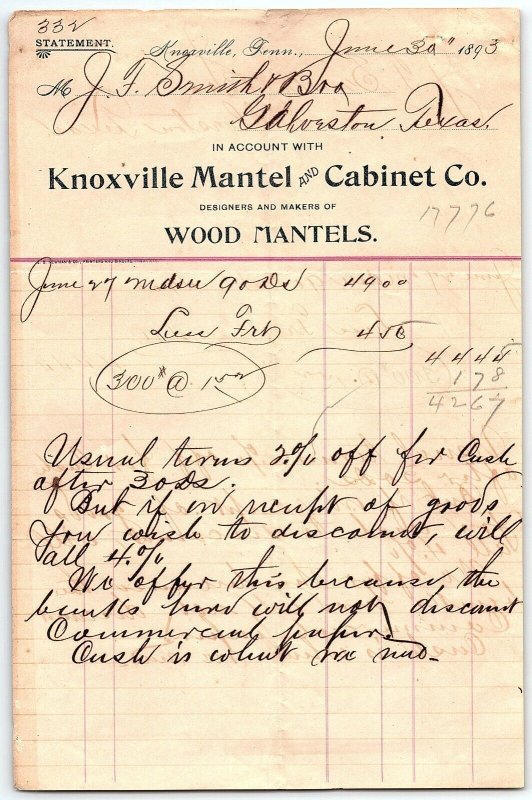 332
STATEMENT.
Knoxville, Tenn., June 30" 1893
M J. F. Smith & Bro
Galveston Texas.
IN ACCOUNT WITH
Knoxville Mantel AND Cabinet Co.
DESIGNERS AND MAKERS OF
17776
WOOD MANTELS.
June 27 mdse 90 Ds 49 00
Less Frt 4 5
300# @ 1 52
44 4
1 78
42 67
Usual terms 2.% off for Cash
after 30 Ds.
But if on receipt of goods
you wish to discount, will
all 4.%
We offer this because the
banks here will not discount
Commercial paper.
Cash is what we need.